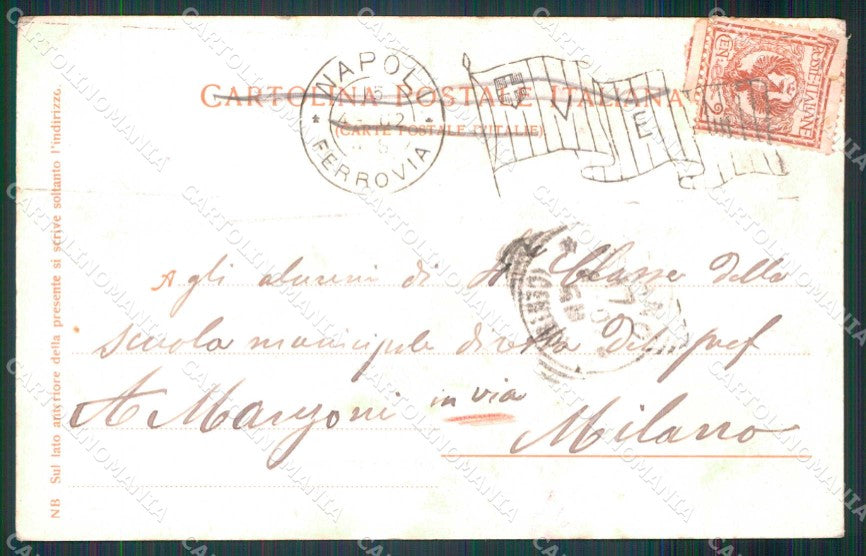 CARTOLINA POSTALE ITALIANA
(CARTE POSTALE D'ITALIE)
NAPOLI
FERROVIA
V E
POSTE ITALIANE
CENT.
Agli alunni di 4ª Classe della
scuola municipale diretta dal prof
A Manzoni in via
Milano
NB Sul lato anteriore della presente si scrive soltanto l'indirizzo.
CARTOLINOMANIA